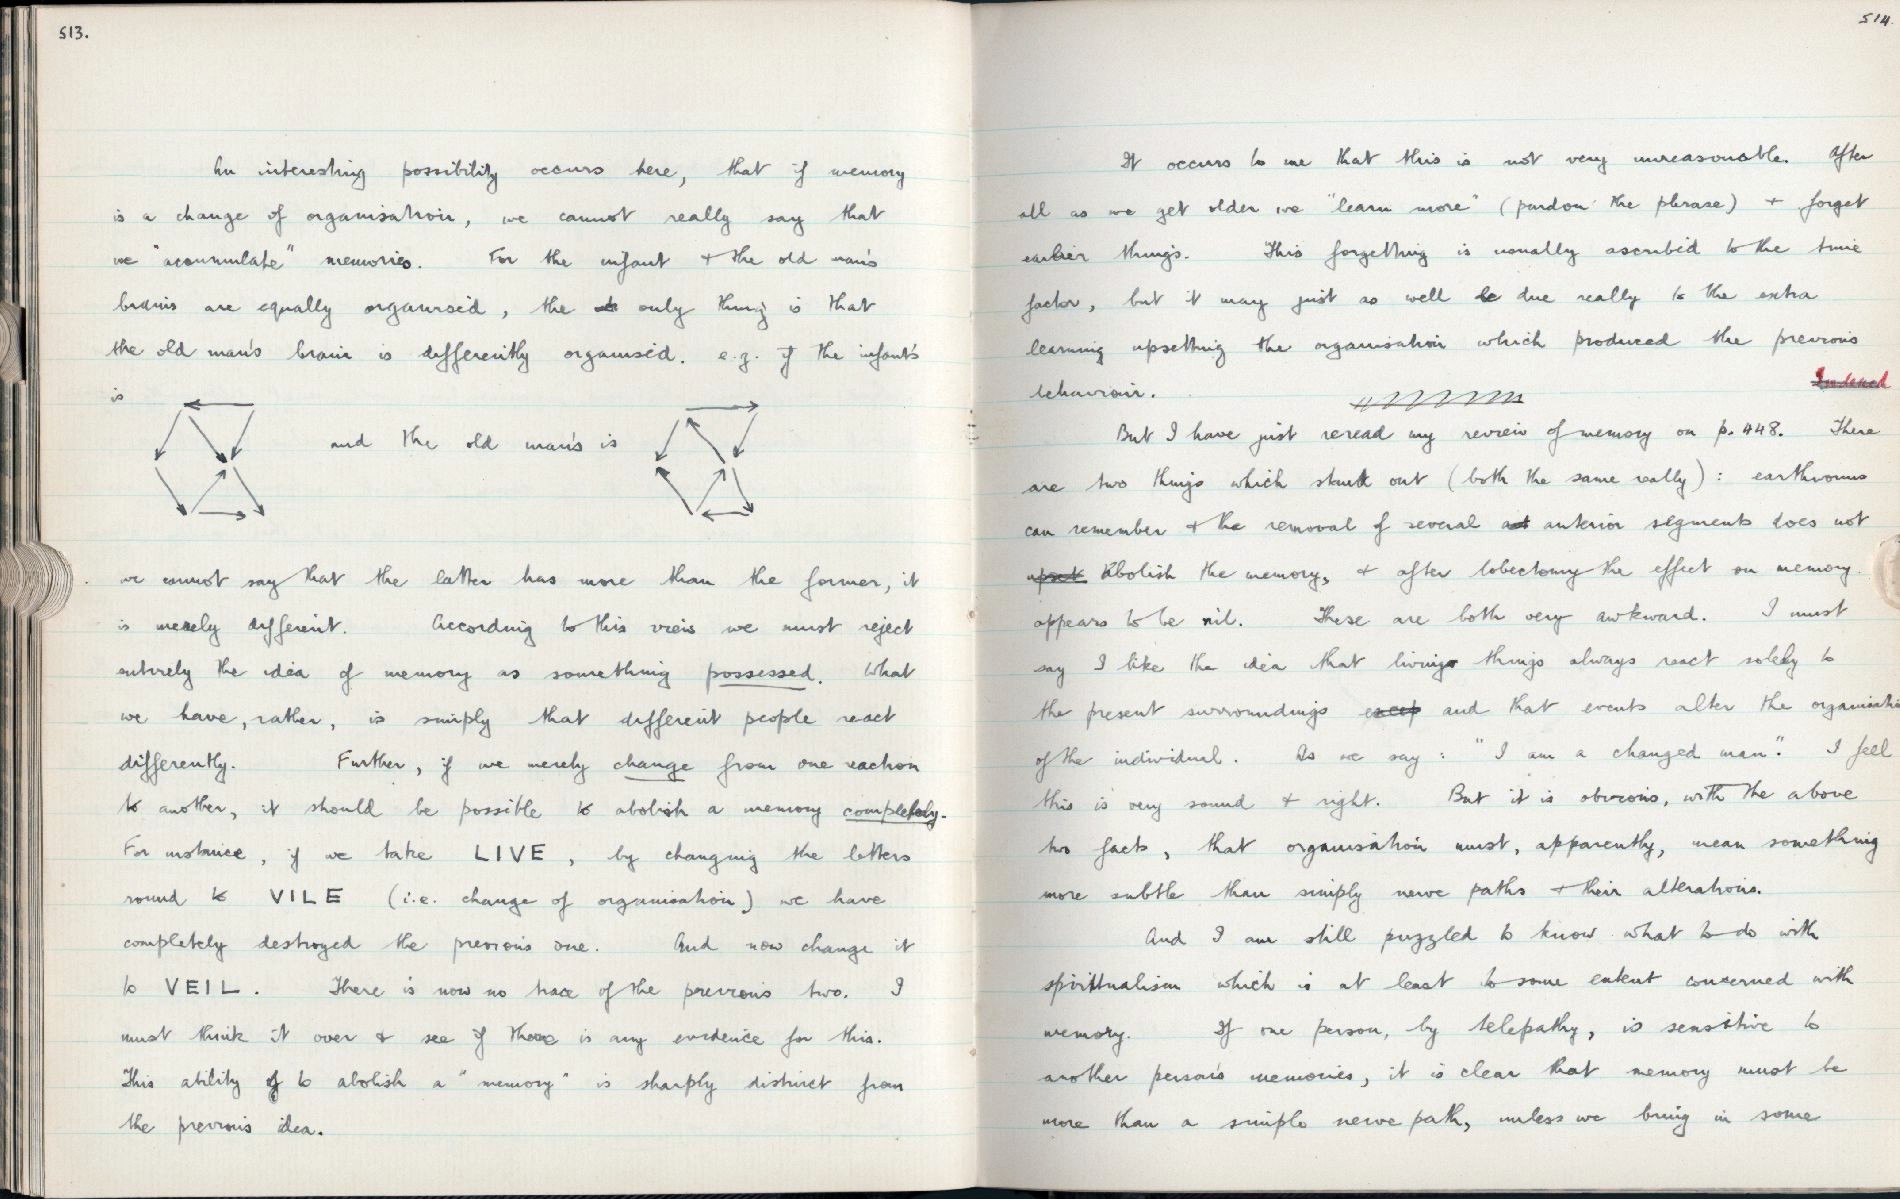 513.
An interesting possibility occurs here, that if memory
is a change of organisation, we cannot really say that
we "accumulate" memories. For the infant & the old man's
brains are equally organised, the only thing is that
the old man's brain is differently organised. e.g. if the infant's
is
and the old man's is
we cannot say that the latter has more than the former, it
is merely different. According to this view we must reject
entirely the idea of memory as something possessed. What
we have, rather, is simply that different people react
differently. Further, if we merely change from one reaction
to another, it should be possible to abolish a memory completely.
For instance, if we take LIVE, by changing the letters
round to VILE (i.e. change of organisation) we have
completely destroyed the previous one. And now change it
to VEIL. There is now no trace of the previous two. I
must think it over & see if there is any evidence for this.
This ability of to abolish a "memory" is sharply distinct from
the previous idea.
514
It occurs to me that this is not very unreasonable. After
all as we get older we "learn more" (pardon the phrase) & forget
earlier things. This forgetting is usually ascribed to the time
factor, but it may just as well be due really to the extra
learning upsetting the organisation which produced the previous
behaviour.
Indexed
But I have just reread my review of memory on p. 448. There
are two things which stand out (both the same really): earthworms
can remember & the removal of several ant anterior segments does not
upset abolish the memory, & after lobectomy the effect on memory
appears to be nil. These are both very awkward. I must
say I like the idea that living things always react solely to
the present surroundings excep and that events alter the organisation
of the individual. As we say: "I am a changed man". I feel
this is very sound & right. But it is obvious, with the above
two facts, that organisation must, apparently, mean something
more subtle than simply nerve paths & their alterations.
And I am still puzzled to know what to do with
spiritualism which is at least to some extent concerned with
memory. If one person, by telepathy, is sensitive to
another person's memories, it is clear that memory must be
more than a simple nerve path, unless we bring in some